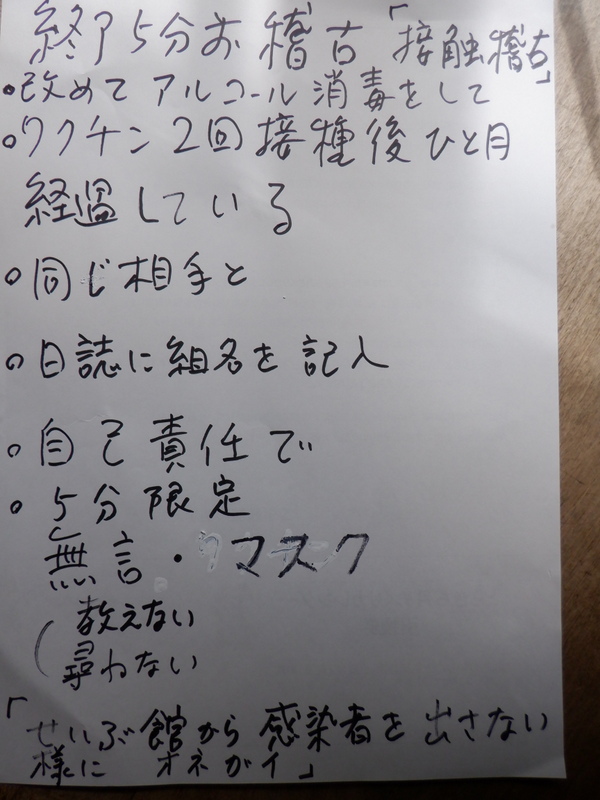 終了5分お稽古「接触稽古」
•改めてアルコール消毒をして
•ワクチン2回接種後ひと月
経過している
•同じ相手と
•日誌に組名を記入
•自己責任で
•5分限定
無言・マスク
(教えない
尋ねない
「せいぶ館から感染者を出さない
様に オネガイ」